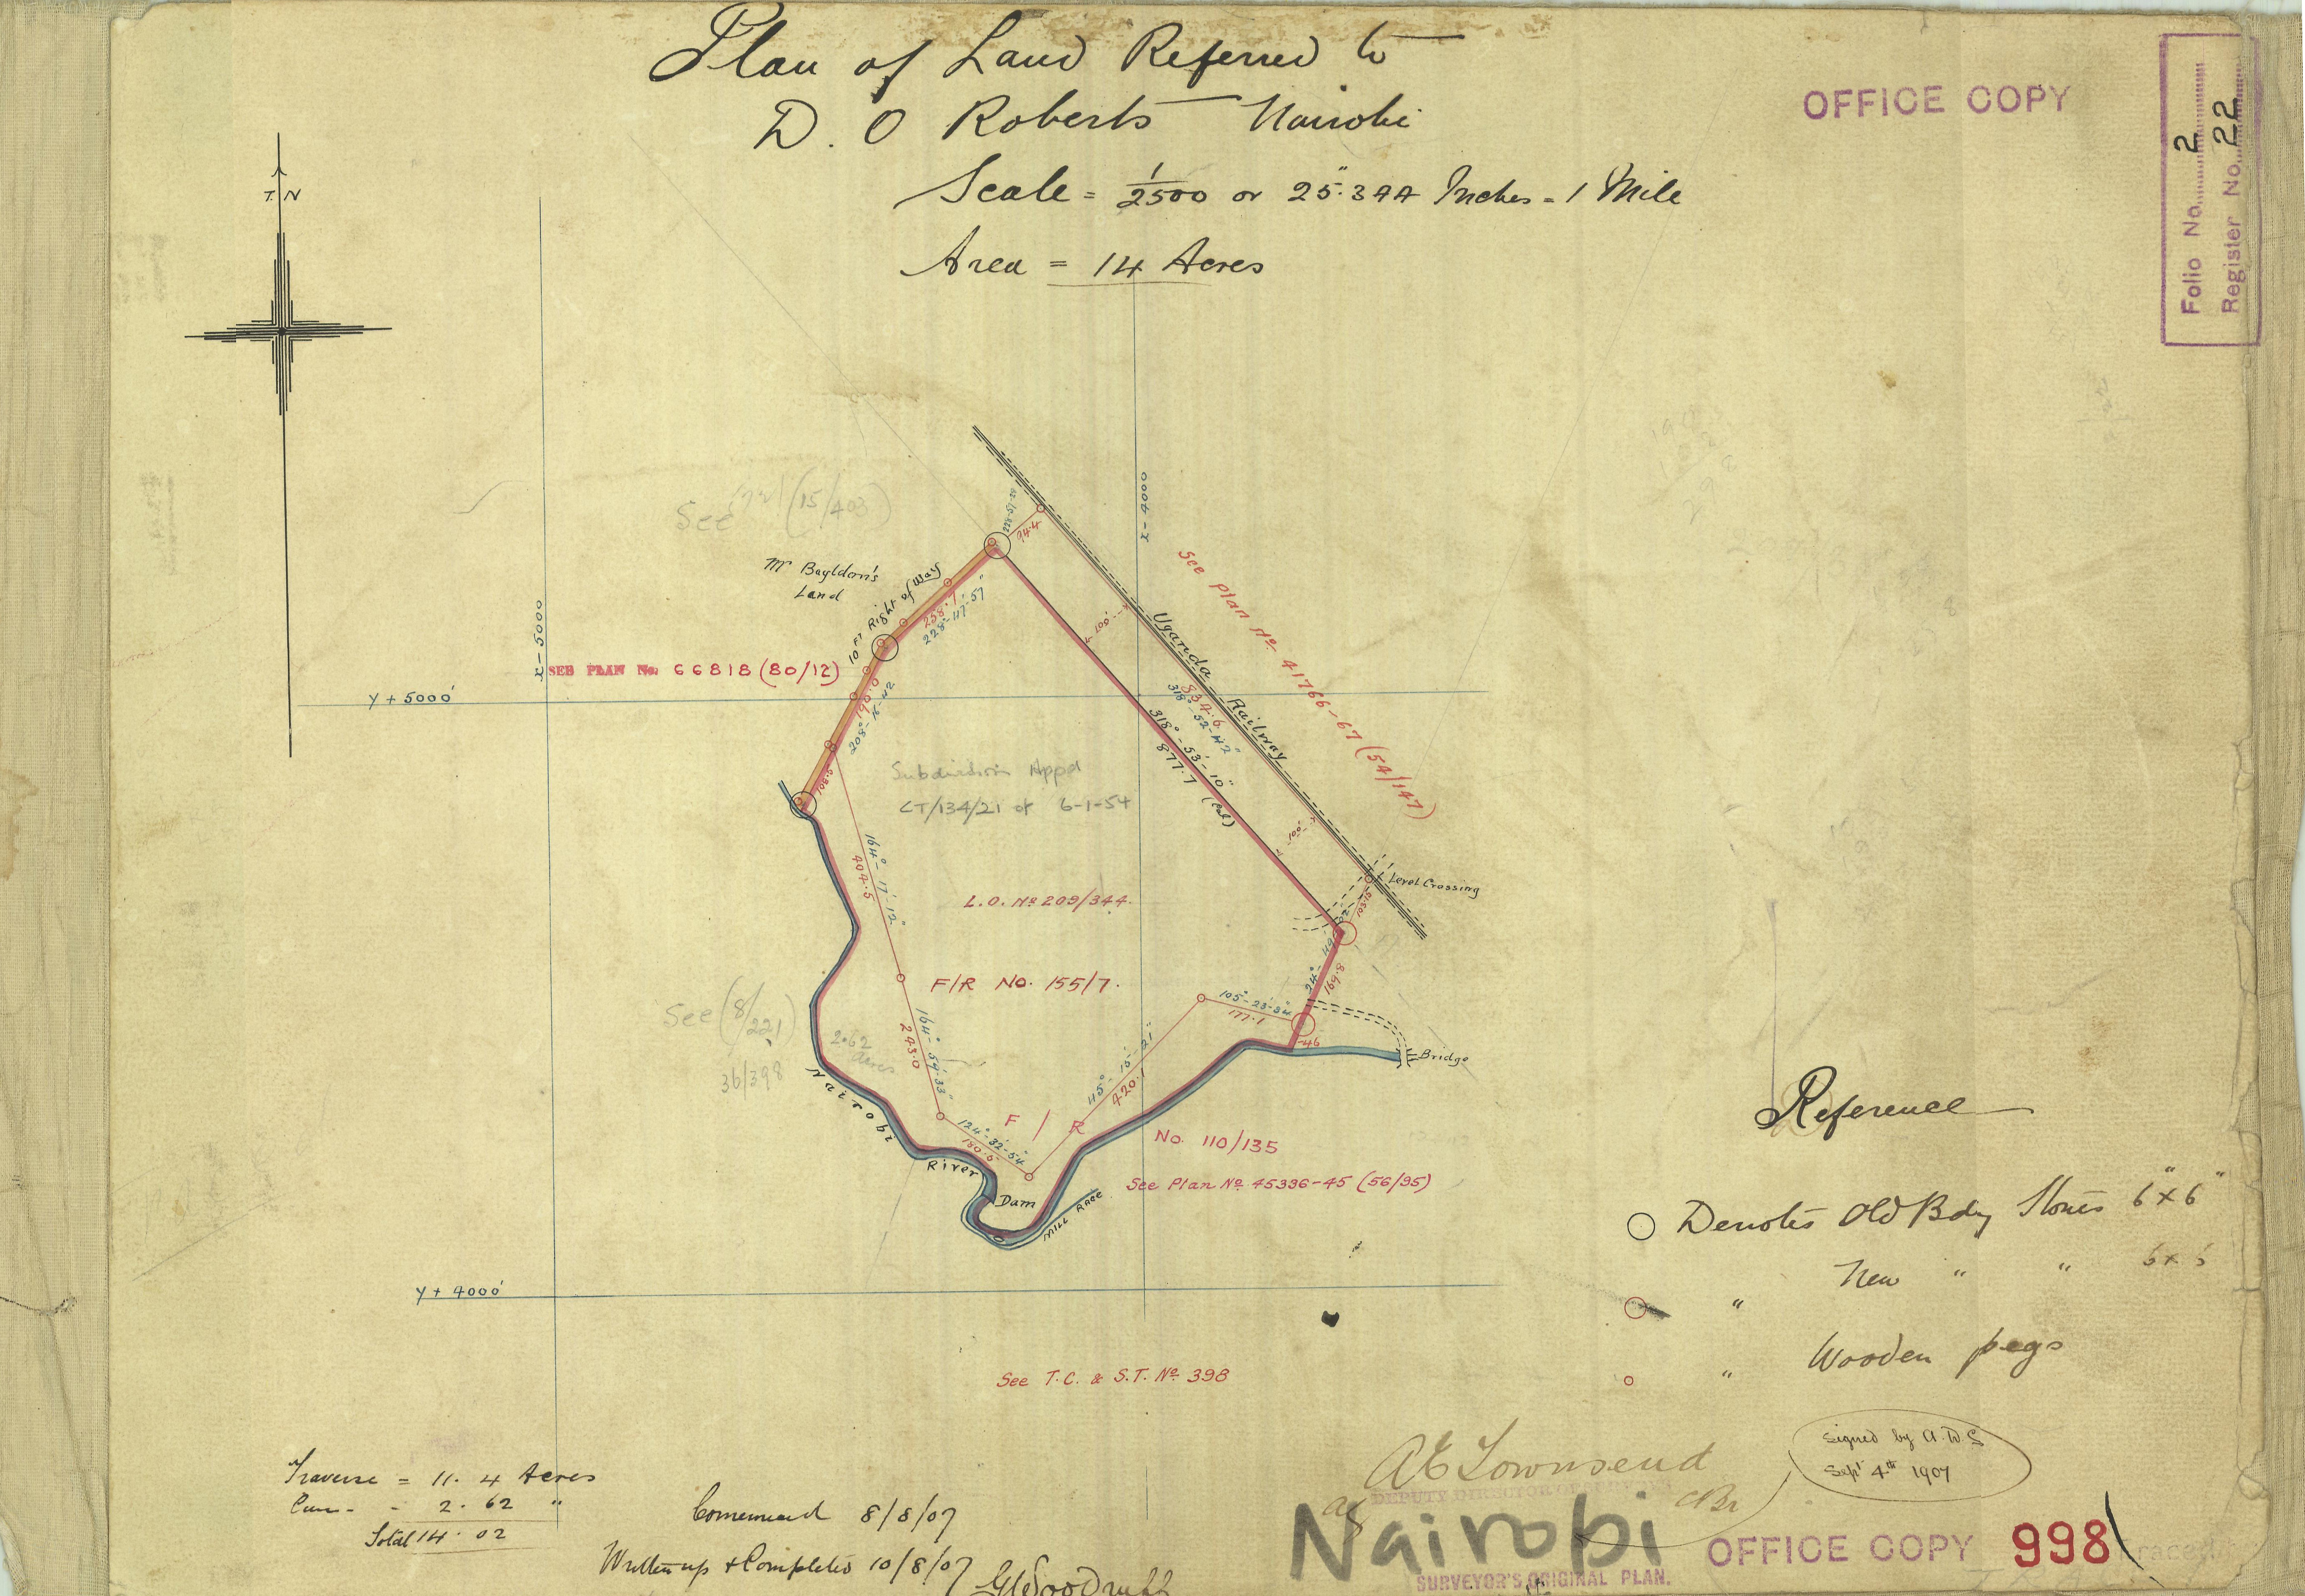 Plan of Land Referred to
D. O Roberts Nairobi
Scale = 1/2500 or 25".344 Inches = 1 Mile
Area = 14 Acres
OFFICE COPY
Folio No. 2
Register No. 22
T. N
See (15/403)
x - 5000
x - 4000
Y + 5000'
Y + 4000'
Mr Bayldon's
Land
10 Ft Right of Way
258.7
228°-47'-57"
94.4
SEE PLAN No. 66818 (80/12)
190.0
208°-16'-42
108.5
See Plan No. 41766-67 (54/147)
Uganda Railway
834.6
318°-52'-42"
318°-53'-10"
877.7 (Cal)
100'
100'
Subdivision Appd
CT/134/21 of 6-1-54
164°-17'-12"
404.5
L.O. No 209/344.
Level Crossing
103.5
F/R No. 155/7.
169.8
105°-23'-34"
177.1
46
Bridge
See (8/221)
36/398
2.62
acres
164°-54'-33"
243.0
45°-15'-21"
420.1
Nairobi
River
F / R
No. 110/135
124°-32'-54"
180.5
Dam
Mill Race
See Plan No 45336-45 (56/95)
See T.C. & S.T. No 398
Reference
Denotes Old Bdy Stones 6" x 6"
" New " " 6 x 6
" Wooden pegs
Traverse = 11.4 Acres
2.62 "
Total 14.02
Commenced 8/8/07
Written up + Completed 10/8/07
G W Woodruff
A E Townsend
ag
DEPUTY DIRECTOR OF SURVEYS
Signed by A.D.S
Sept 4th 1907
Nairobi
SURVEYOR'S ORIGINAL PLAN.
OFFICE COPY
998